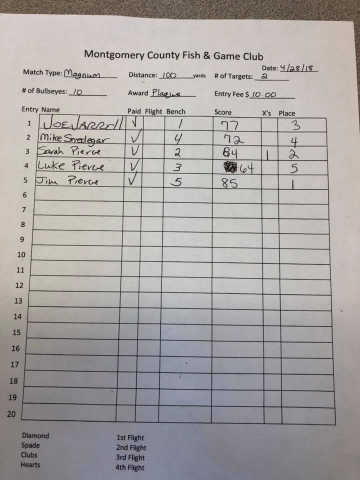 Montgomery County Fish & Game Club
Date: 4/28/18
Match Type: Magnum Distance: 100 yards # of Targets: 2
# of Bullseyes: 10 Award Plaque Entry Fee $ 10.00
Entry Name Paid Flight Bench Score X's Place
1 JOE JARRELL ✓ 1 77 3
2 Mike Snedegar ✓ 4 72 4
3 Sarah Pierce ✓ 2 84 1 2
4 Luke Pierce ✓ 3 64 5
5 Jim Pierce ✓ 5 85 1
6
7
8
9
10
11
12
13
14
15
16
17
18
19
20
Diamond 1st Flight
Spade 2nd Flight
Clubs 3rd Flight
Hearts 4th Flight